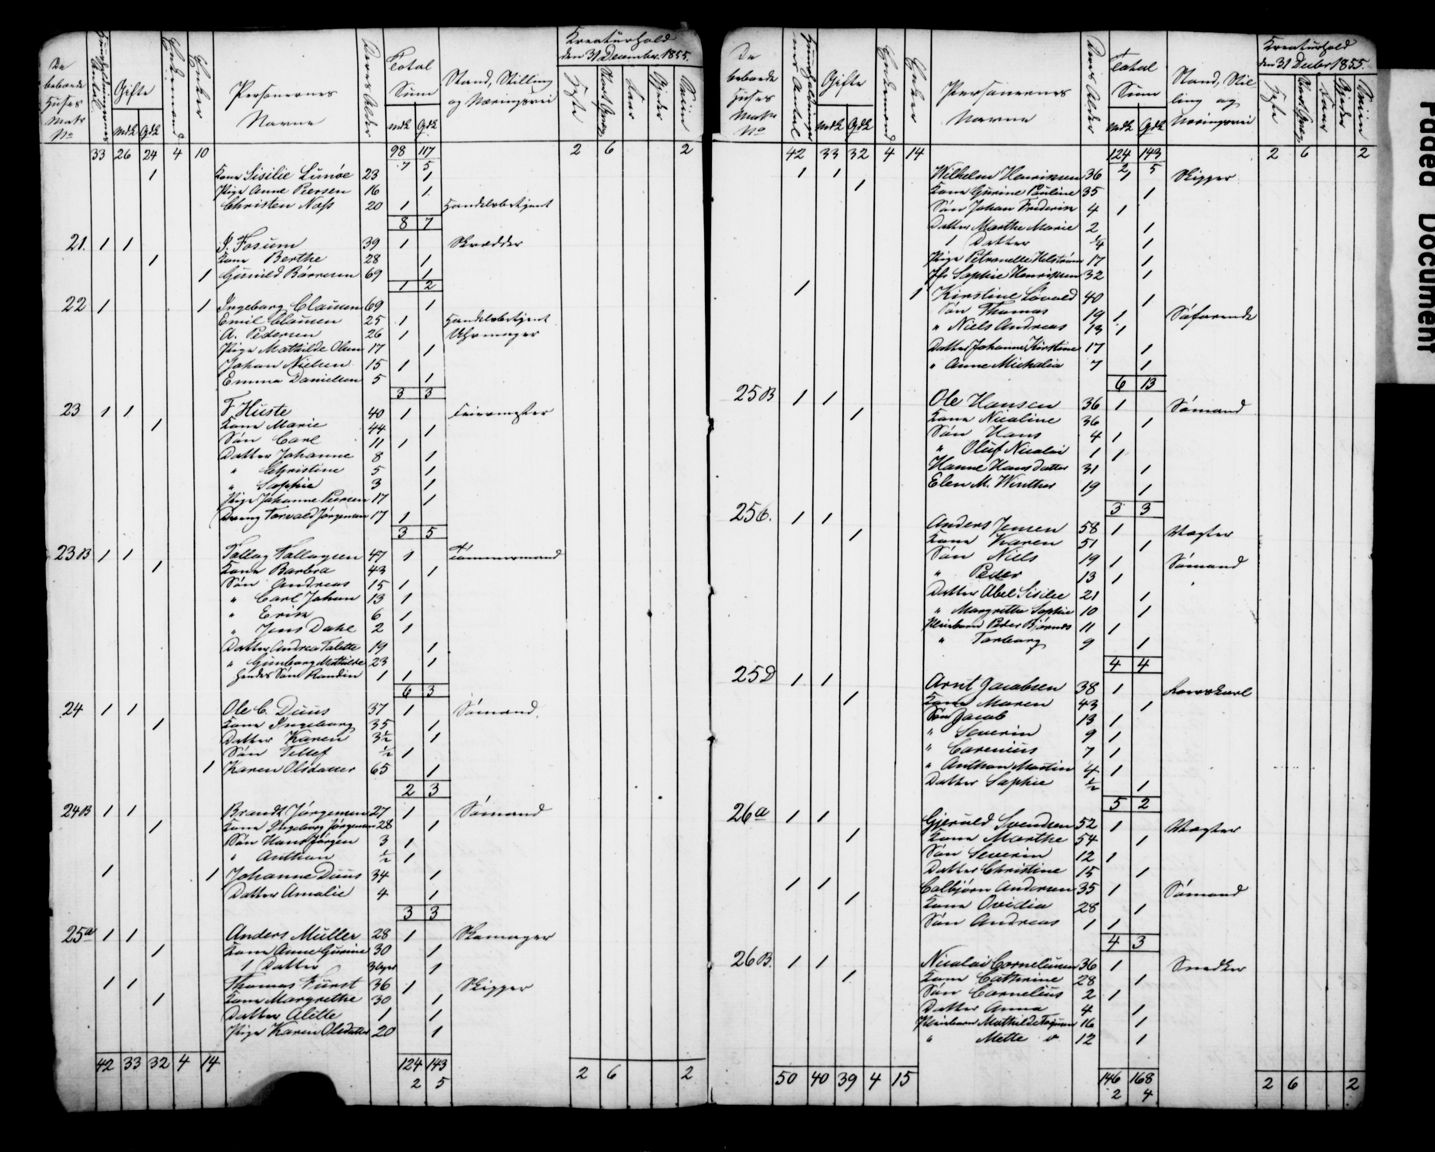 De beboede Huses Matr No
Huusholdningernes Antal
Gifte
Mdk Qdk
Enkemænd
Enker
Personernes Navne
Deres Alder
Total Sum
mdk Qdk
Stand, Stilling og Næringsvei
Kreaturhold den 31 December 1855.
Heste
Faar
Gjeder
Sviin
33 26 24 4 10 98 117 2 6 2
7 5
1 Kone Sisilie Lunøe 23 1
Pige Anne Persen 16 1
Christen Næss 20 1 Handelsbetjent
8 7
21. 1 1 J. Fosum 39 1 Skrædder
1 Kone Berthe 28 1
1 Gunild Børresen 69 1
1 2
22 1 1 Ingeborg Clausen 69 1
Emil Clausen 25 1 Handelsbetjent
A. Pedersen 26 1 Uhrmager
Pige Mathilde Olsen 17 1
Johan Nielsen 15 1
Emma Danielsen 5 1
3 3
23 1 1 F. Huste 40 1 Feiermester
1 Kone Marie 44 1
Søn Carl 11 1
Datter Johanne 8 1
" Christine 5 1
" Sophie 3 1
Pige Johanne Persen 17 1
Dreng Torvald Jørgensen 17 1
3 5
23B 1 1 Tallag Tallagsen 47 1 Tømmermand
1 Kone Barbra 43 1
Søn Andreas 15 1
" Carl Johan 13 1
" Erik 6 1
" Jens Dahl 2 1
Datter Andrea Talette 19 1
" Gunborg Mathilde 23 1
Hendes Søn Randin 1 1
6 3
24 1 1 Ole C. Duus 37 1 Sømand.
1 Kone Ingeborg 35 1
Datter Karen 3½ 1
Søn Tellef ½ 1
1 Karen Olsdatter 65 1
2 3
24B 1 1 Brandt Jørgensen 27 1 Sømand
1 Kone Ingeborg Jørgensen 28 1
Søn Hans Jørgen 3 1
" Anthon ½ 1
1 1 Johanne Duus 34 1
Datter Amalie 4 1
3 3
25a 1 1 Anders Müller 28 1 Skomager
1 Kone Anne Gurine 30 1
1 Datter 1
1 1 Thomas Kunst 36 1 Skipper
1 Kone Margrethe 30 1
Datter Alette 1 1
Pige Karen Olsdatter 20 1
42 33 32 4 14 124 143 2 6 2
2 5
De beboede Huses Matr No
Huusholdningernes Antal
Gifte
mdk Qdk
Enkemænd
Enker
Personernes Navne
Deres Alder
Total Sum
mdk Qdk
Stand, Stilling og Næringsvei
Kreaturhold den 31 Decbr 1855
Heste
Faar
Gjeder
Sviin
42 33 32 4 14 124 143 2 6 2
2 5
1 1 Wilhelm Henriksen 36 1 Skipper
1 Kone Gurine Pauline 35 1
Søn Johan Frederik 4 1
Datter Marthe Marie 2 1
1 Datter ¼ 1
Pige Petronelle Helstrøm 17 1
Sophie Henriksen 32 1
1 1 Kirstine Løvold 40 1
Søn Thomas 19 1 Søfarende
" Niels Andreas 13 1
Datter Johanne Kirstine 17 1
" Anne Michalia 7 1
6 13
25B 1 1 Ole Hansen 36 1 Sømand
1 Kone Nicoline 36 1
Søn Hans 4 1
" Oluf Nicolai 1 1
Hanne Hansdatter 31 1
Elen M. Winther 19 1
3 3
25C. 1 1 Anders Jensen 58 1 Vægter
1 Kone Karen 51 1
Søn Niels 19 1 Sømand
" Peder 13 1
Datter Abel Sisilie 21 1
" Margrethe Sophie 10 1
Pleiebarn Peder 11 1
" Torborg 9 1
4 4
25D 1 1 Arnt Jacobsen 38 1
1 Kone Maren 43 1
Søn Jacob 13 1
" Severin 9 1
" Carenius 7 1
" Anthon Martin 4 1
Datter Sophie ½ 1
5 2
26a 1 1 Gjeruld Svendsen 52 1 Vægter
1 Kone Marthe 54 1
Søn Severin 12 1
Datter Christine 15 1
1 1 Colbjørn Andersen 35 1 Sømand
1 Kone Ovidia 28 1
Søn Andreas 1 1
4 3
26B. 1 1 Nicolai Corneliusen 36 1 Snedker
1 Kone Cathrine 28 1
Søn Cornelius 2 1
Datter Anna 4 1
Pleiebarn Mathilde 16 1
" Mette 12 1
50 40 39 4 15 146 168 2 6 2
2 4
Faded Document